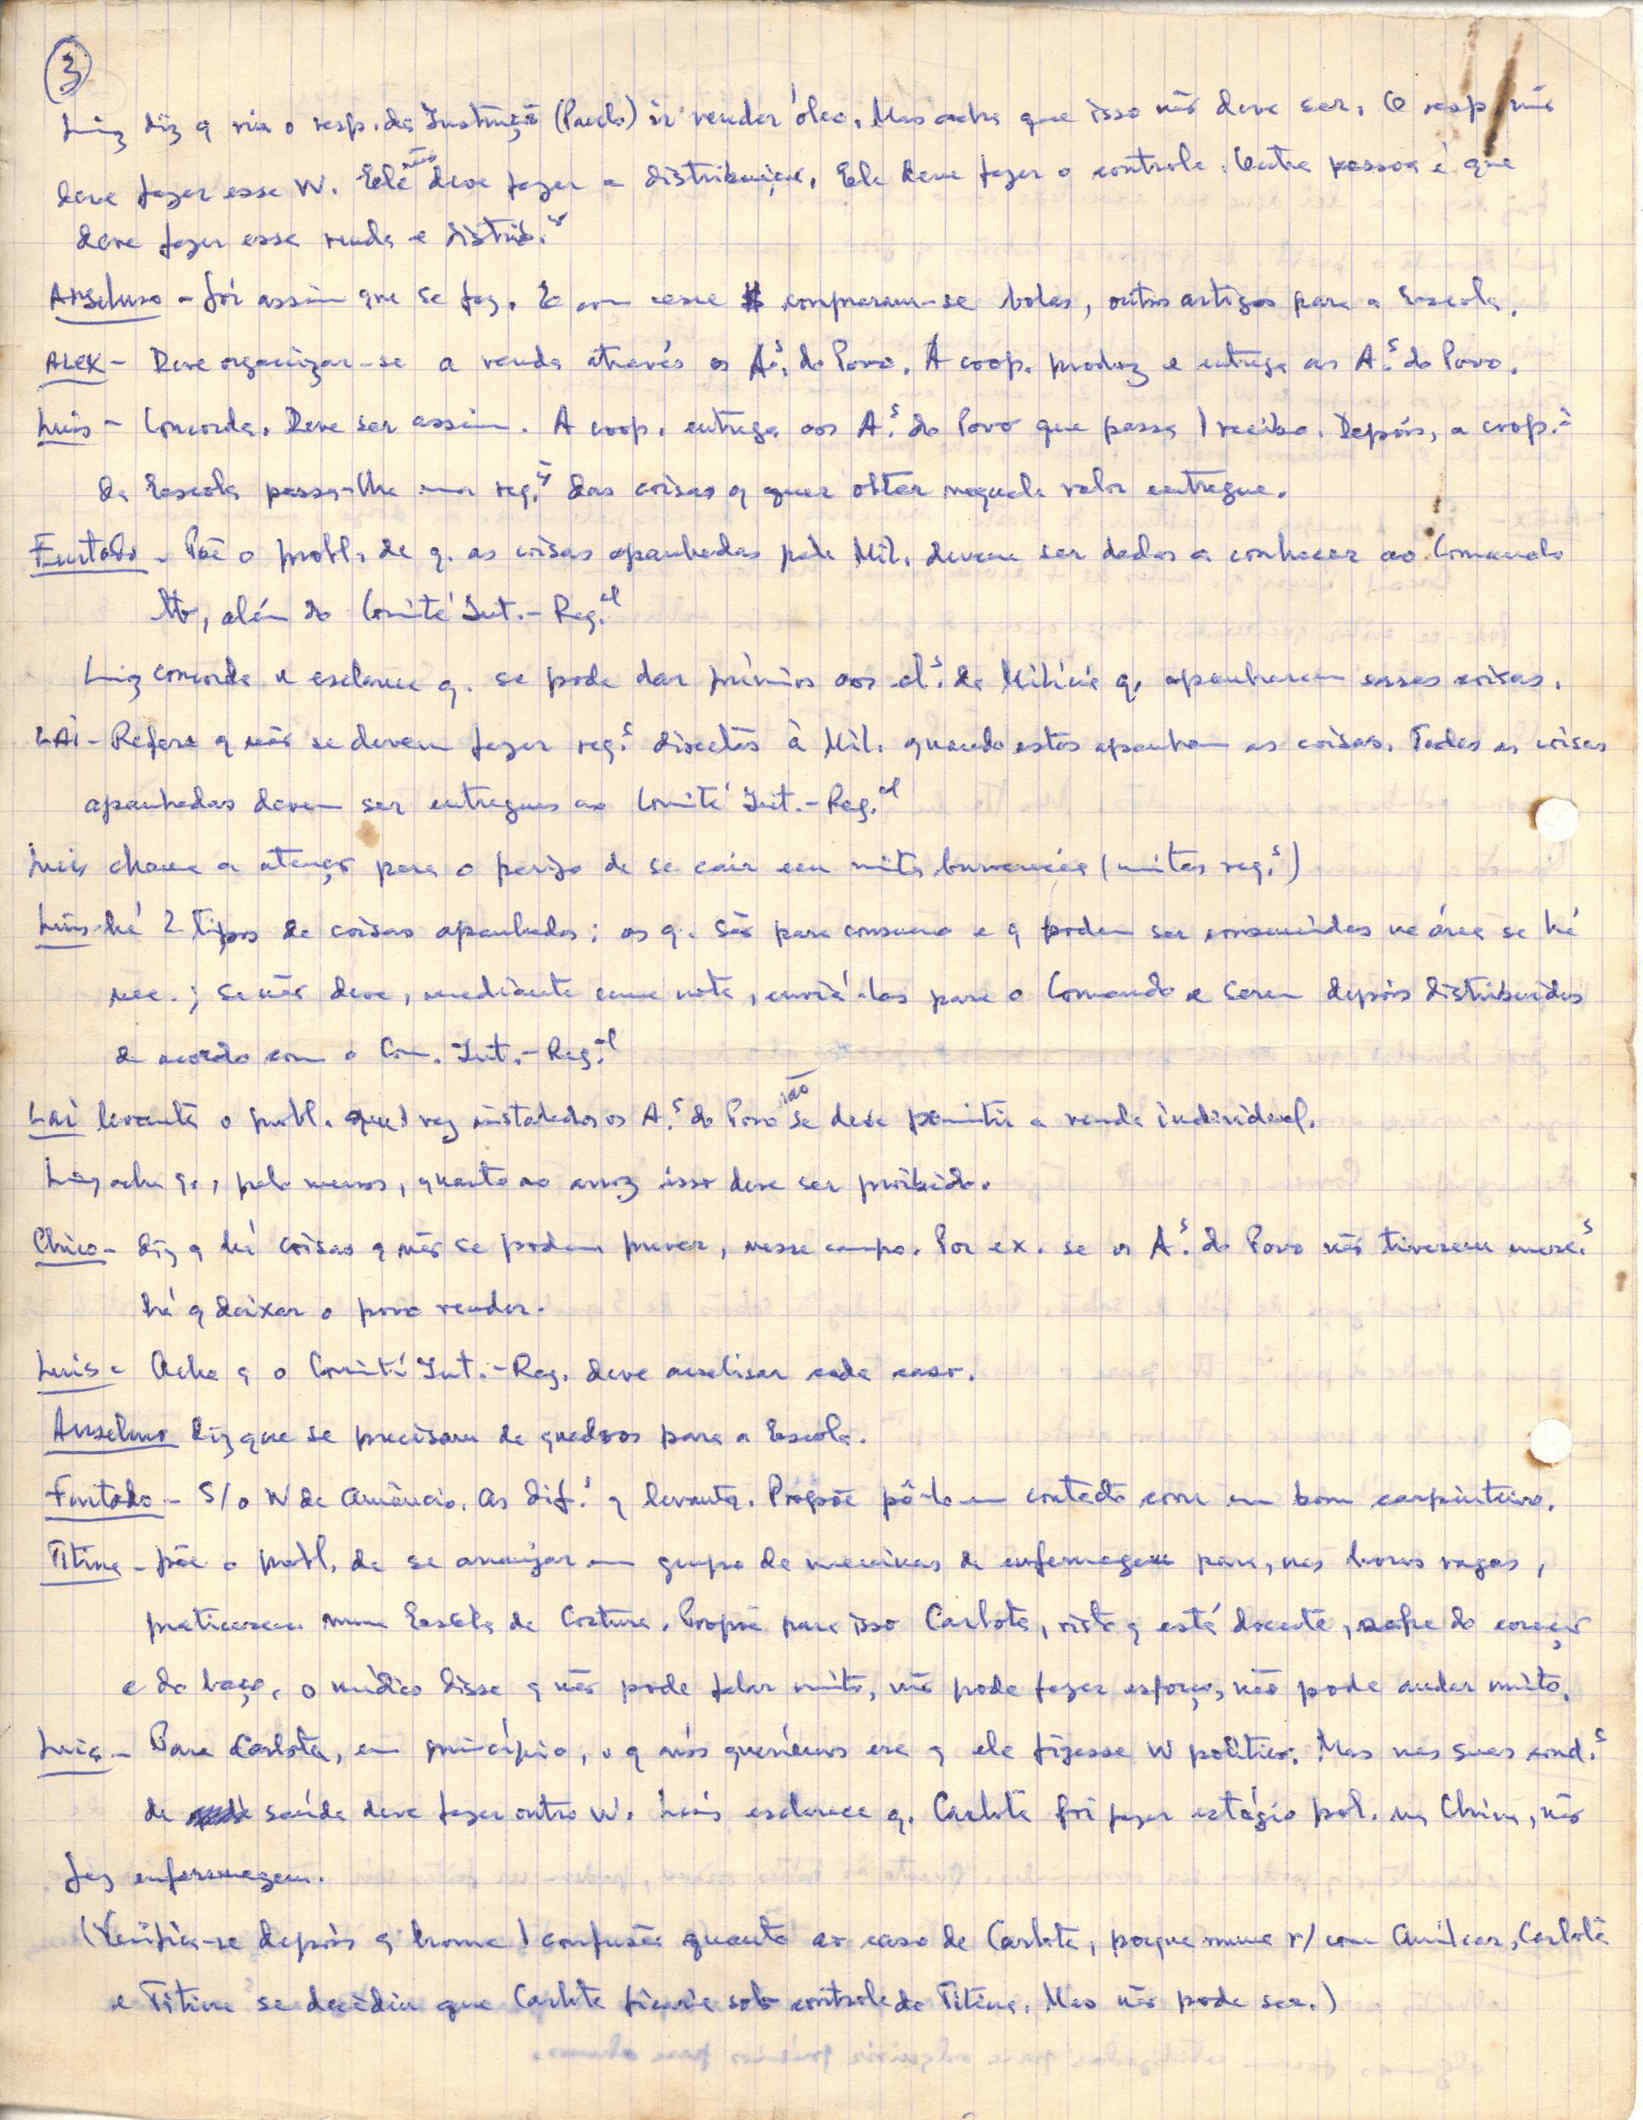 3
Luiz diz q via o resp. da Instrução (Paulo) ir vender óleo. Mas acha que isso não deve ser. O resp não
deve fazer esse W. Ele não deve fazer a distribuição. Ele deve fazer o controle. Outra pessoa é que
deve fazer essa venda e distrib.ão
Anselmo - foi assim que se fez. E com esse $ compraram-se bolas, outros artigos para a Escola.
ALEX - Deve organizar-se a venda através os A.s do Povo. A coop. produz e entrega aos A.s do Povo.
Luís - Concorda. Deve ser assim. A coop. entrega aos A.s do Povo que passa 1 recibo. Depois, a coop.a
da Escola passa-lhe uma req.ão das coisas q quer obter naquele valor entregue.
Furtado - Põe o probl. de q. as coisas apanhadas pela Mil. devem ser dadas a conhecer ao Comando
Mo, além do Comité Int.-Reg.al
Luiz concorda e esclarece q. se pode dar prémios aos el.s da Milícia q. apanharem essas coisas.
LAI - Refere q não se devem fazer req.s directas à Mil. quando estas apanham as coisas. Todas as coisas
apanhadas devem ser entregues ao Comité Int.-Reg.al
Luís chama a atenção para o perigo de se cair em muita burocracia (muitas req.s)
Luís - há 2 tipos de coisas apanhadas: as q. são para consumo e q podem ser consumidas na área se há
nec.; se não deve, mediante uma nota, enviá-las para o Comando e serem depois distribuidas
de acordo com o Com. Int.-Reg.al
Lai levanta o probl. que 1 vez instalados os A.s do Povo não se deve permitir a venda individual.
Luiz acha q., pelo menos, quanto ao arroz isso deve ser proibido.
Chico - diz q há coisas q não se podem prever, nesse campo. Por ex. se os A.s do Povo não tiverem merc.s
há q deixar o povo vender.
Luís - Acha q o Comité Int.-Reg. deve analisar cada caso.
Anselmo diz que se precisam de quadros para a Escola.
Furtado - S/ o W de Amâncio. As dif.s q levanta. Propõe pô-lo em contacto com um bom carpinteiro.
Titina - põe o probl. de se arranjar um grupo de meninas de enfermagem para, nas horas vagas,
praticarem numa Escola de Costura. Propõe para isso Carlota, visto q está doente, sofre do coração
e do baço, o médico disse q não pode falar muito, não pode fazer esforço, não pode andar muito.
Luís - Para Carlota, em princípio, o q nós queríamos era q ela fizesse W político. Mas nas suas cond.s
de saúde deve fazer outro W. Luís esclarece q. Carlota foi fazer estágio pol. na China, não
fez enfermagem.
(Verifica-se depois q houve 1 confusão quanto ao caso de Carlota, porque numa r/ com Amilcar, Carlota
e Titina se decidiu que Carlota ficaria sob controle de Titina. Mas não pode ser.)